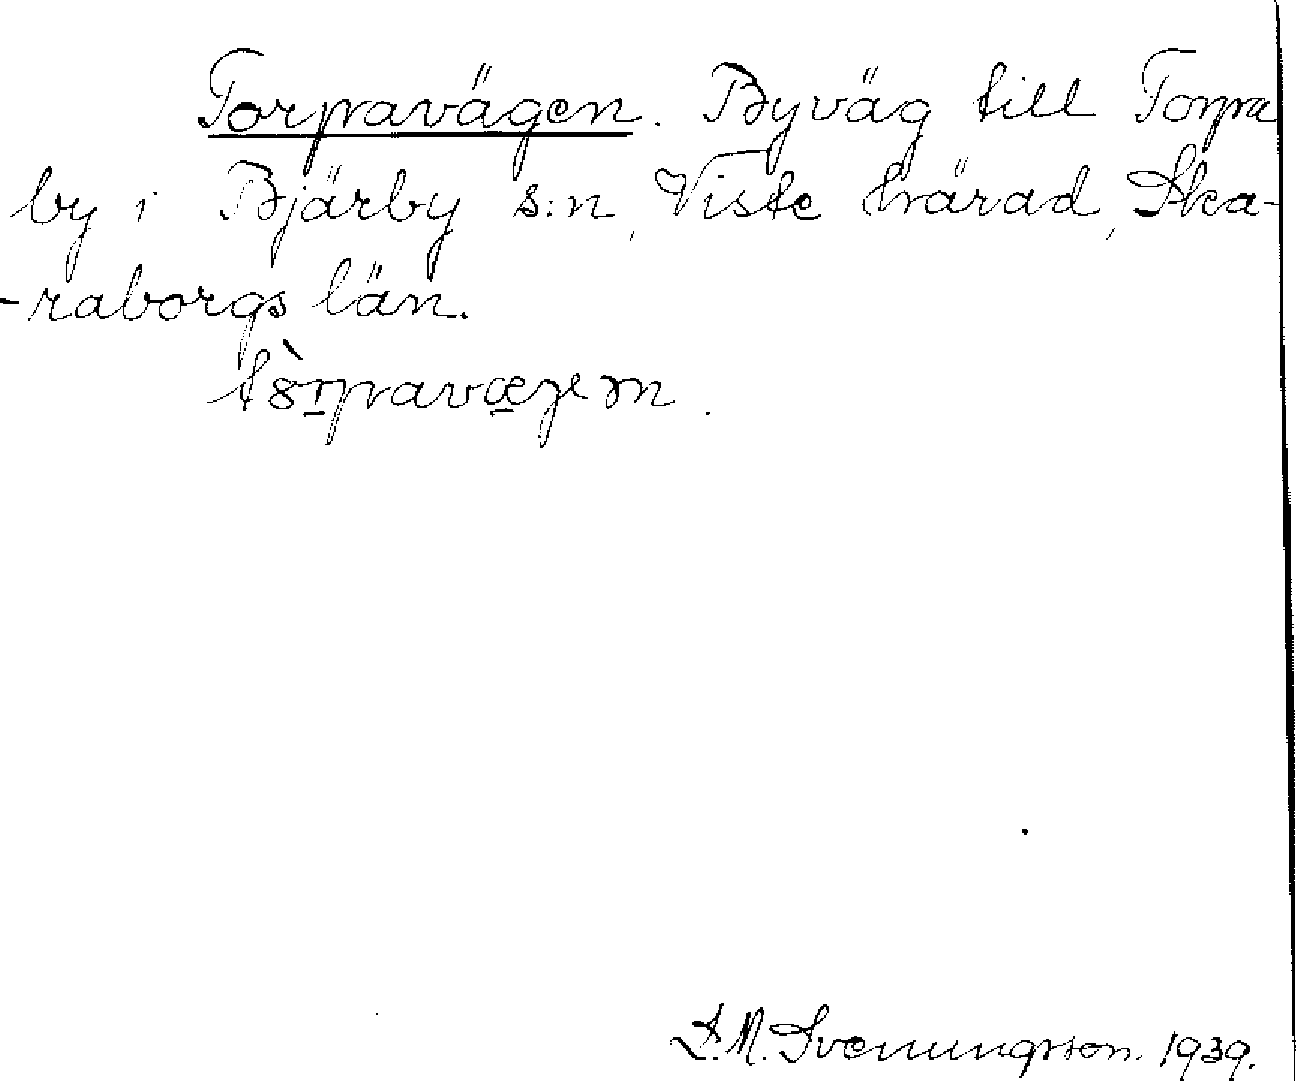 Torpavägen. Byväg till Torpa
by i Bjärby s:n, Viste härad, Ska-
-raborgs län.
S.M. Svenungsson. 1939.